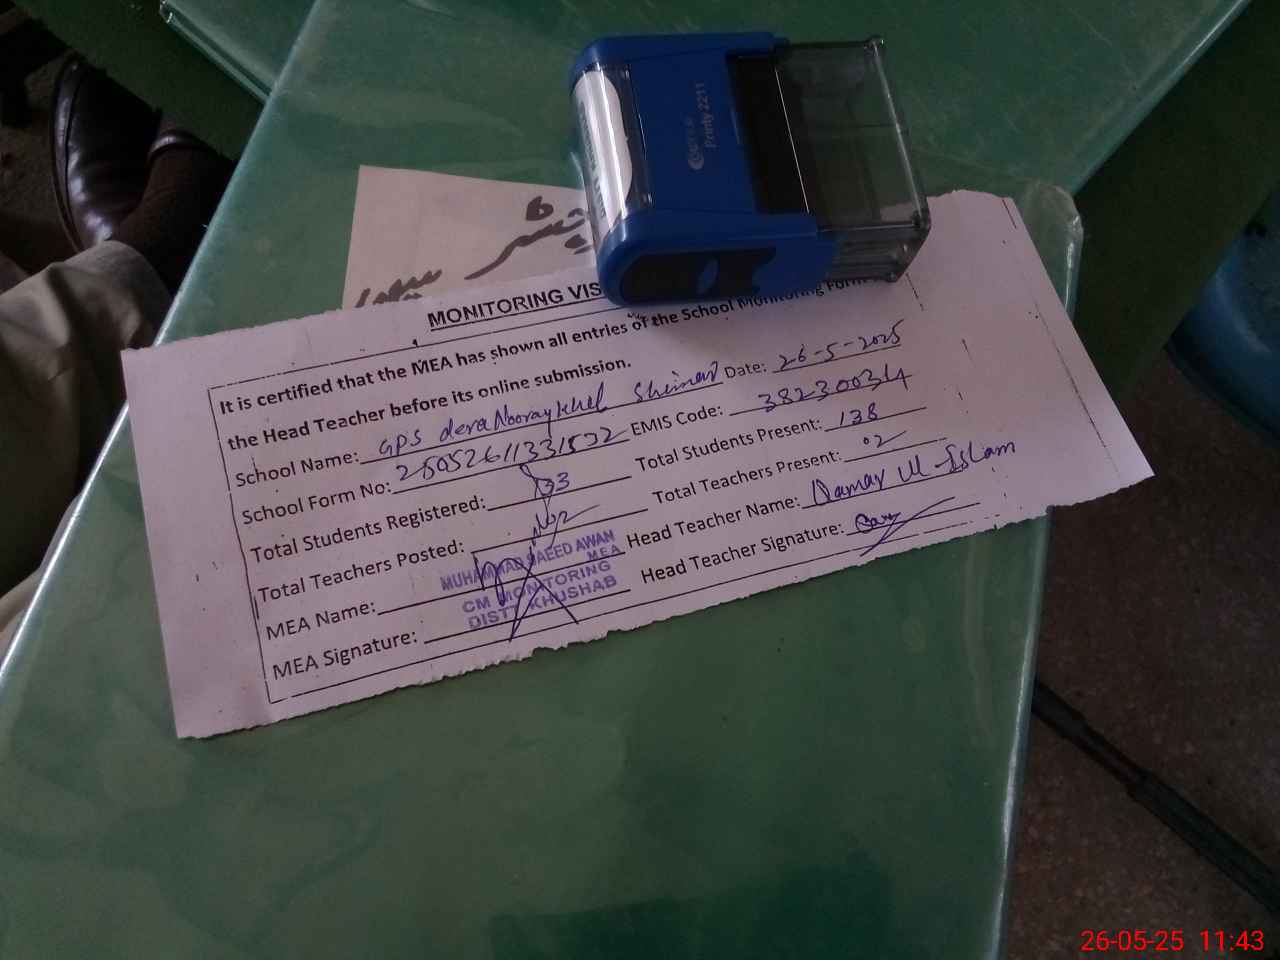 Printy 2211
MONITORING VIS
It is certified that the MEA has shown all entries of the School Monitoring Form
the Head Teacher before its online submission.
School Name: GPS dera Nooraykhel Date: 26-5-2025
School Form No: EMIS Code: 38230034
Total Students Registered: Total Students Present: 138
Total Teachers Posted: 02 Total Teachers Present: 02
MEA Name: MUHAMMAD SAEED AWAN Head Teacher Name: Qamar Ul-Islam
MEA
CM MONITORING
MEA Signature: DISTT KHUSHAB Head Teacher Signature:
26-05-25 11:43